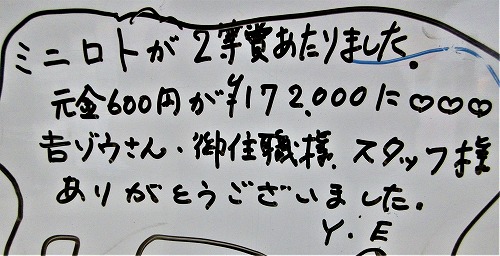 ミニロトが2等賞あたりました.
元金600円が¥172.000に♡♡♡
吉ゾウさん・御住職様.スタッフ様
ありがとうございました.
Y.E